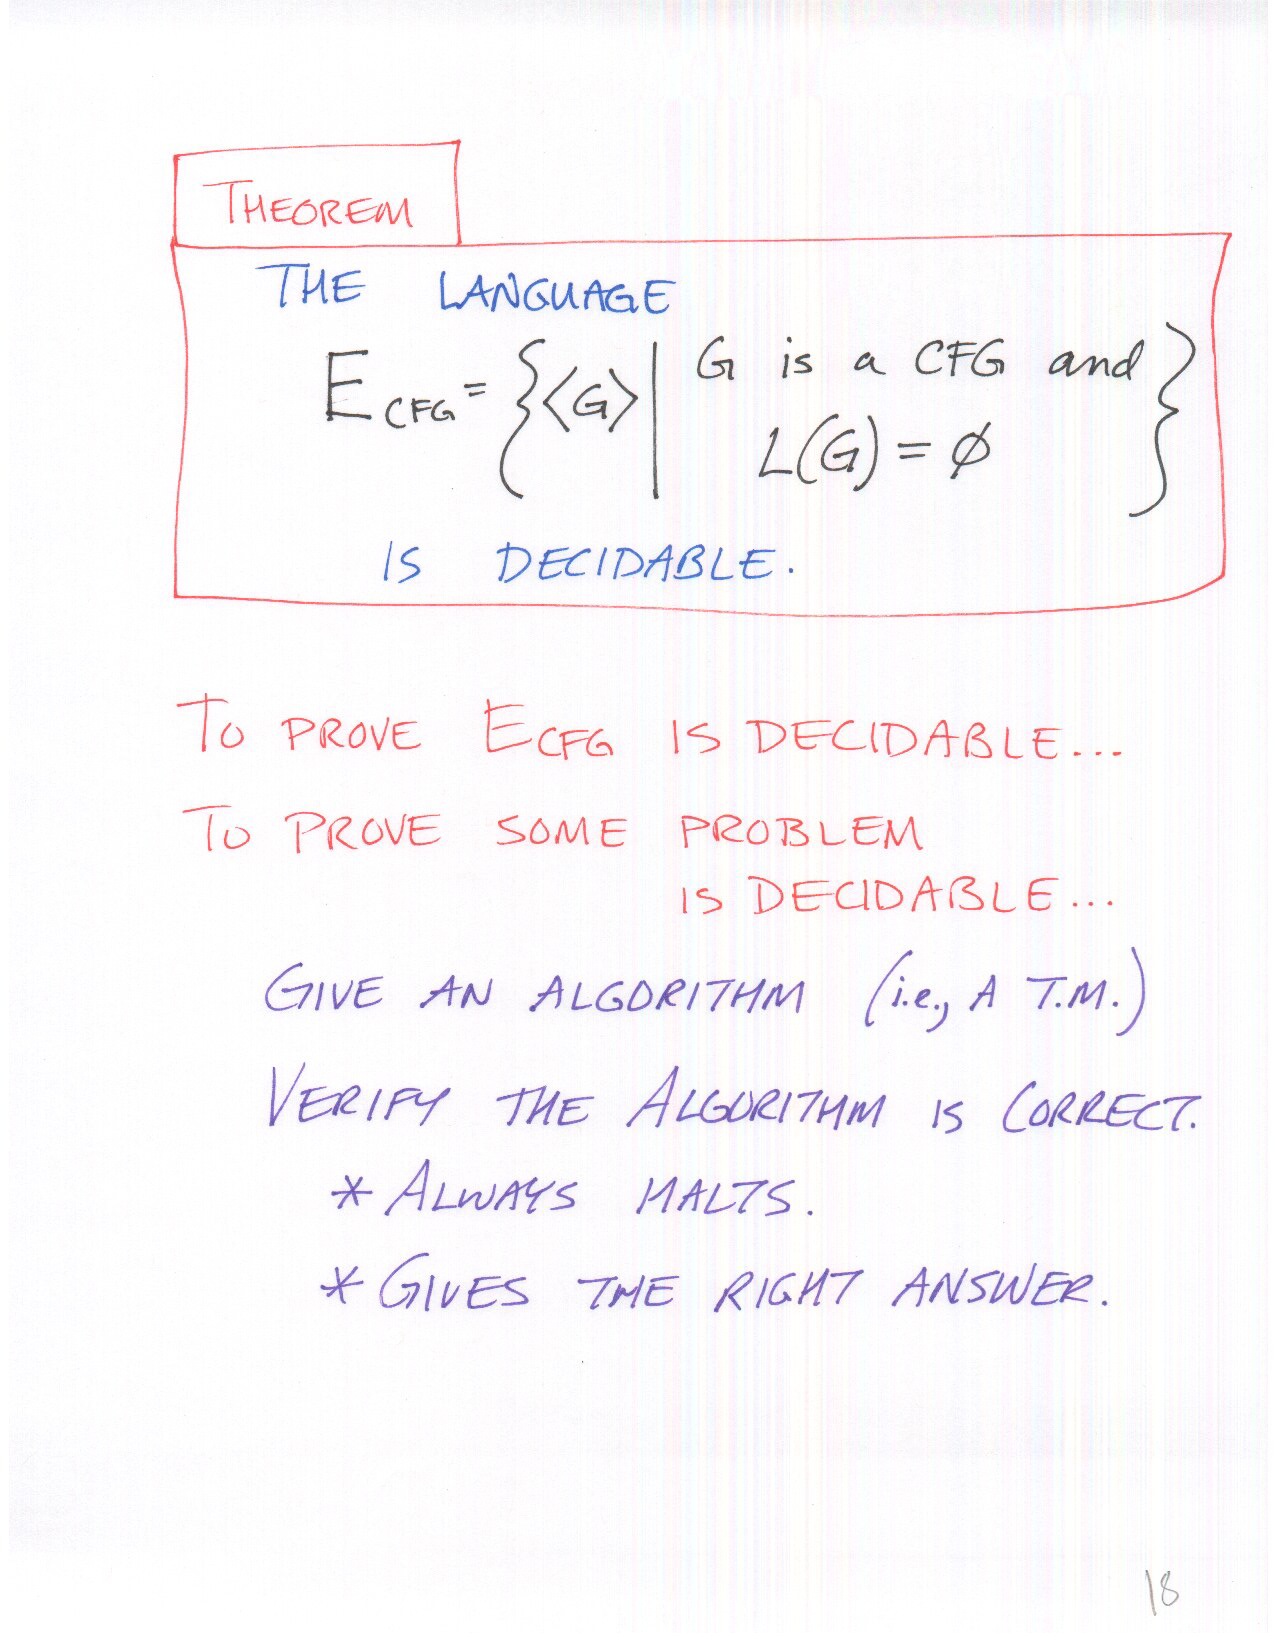 THEOREM
THE LANGUAGE
E_CFG = {<G> | G is a CFG and
L(G) = ∅}
IS DECIDABLE.
TO PROVE E_CFG IS DECIDABLE...
TO PROVE SOME PROBLEM
IS DECIDABLE...
GIVE AN ALGORITHM (i.e., A T.M.)
VERIFY THE ALGORITHM IS CORRECT.
* ALWAYS HALTS.
* GIVES THE RIGHT ANSWER.
18